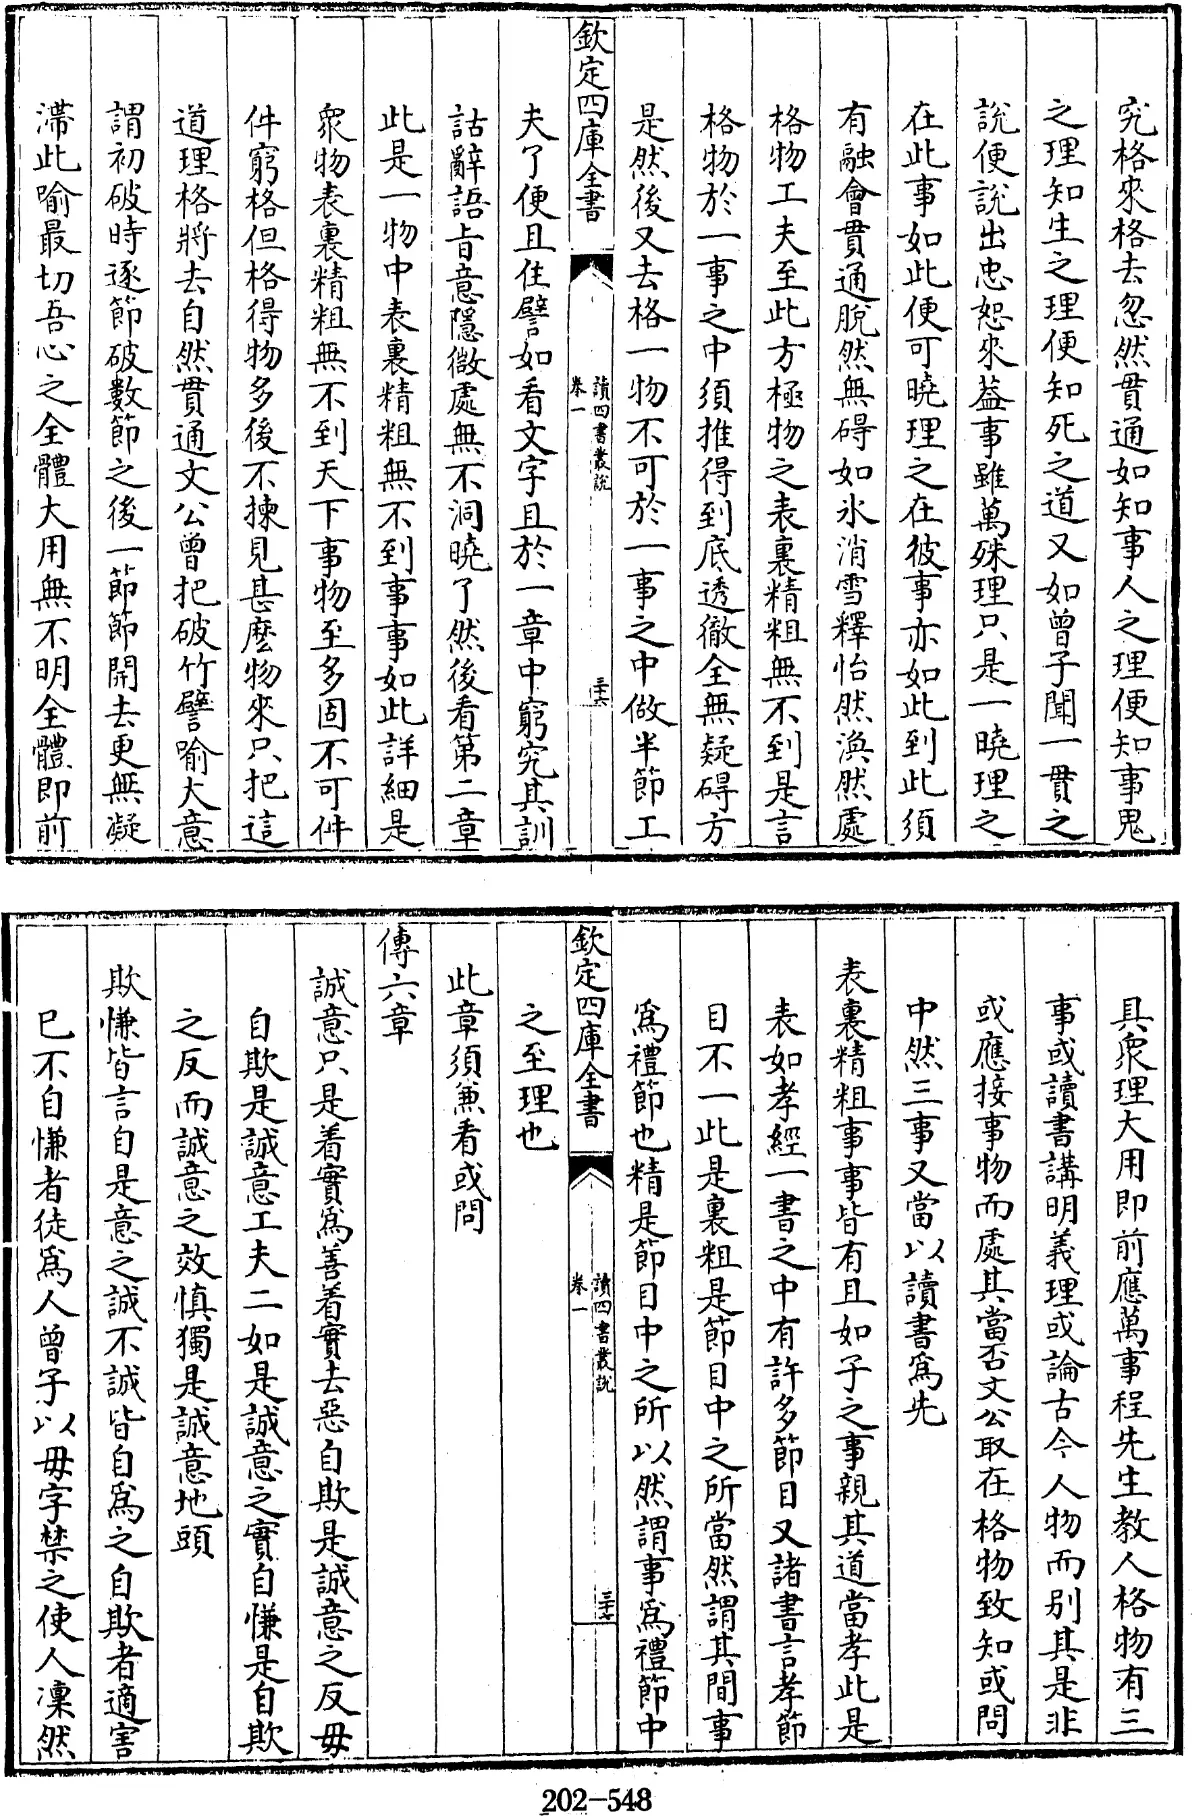 究格來格去忽然貫通如知事人之理便知事鬼
之理知生之理便知死之道又如曾子聞一貫之
說便說出忠恕來益事雖萬殊理只是一曉理之
在此事如此便可曉理之在彼事亦如此到此須
有融會貫通脫然無碍如氷消雪釋怡然渙然處
格物工夫至此方極物之表裏精粗無不到是言
格物於一事之中須推得到底透徹全無疑碍方
是然後又去格一物不可於一事之中做半節工
欽定四庫全書
讀四書叢說
卷一
三十六
夫了便且住譬如看文字且於一章中窮究其訓
詁辭語旨意隱微處無不洞曉了然後看第二章
此是一物中表裏精粗無不到事事如此詳細是
衆物表裏精粗無不到天下事物至多固不可件
件窮格但格得物多後不揀見甚麽物來只把這
道理格將去自然貫通文公曾把破竹譬喻大意
謂初破時逐節破數節之後一節節開去更無凝
滯此喻最切吾心之全體大用無不明全體即前
具衆理大用即前應萬事程先生教人格物有三
事或讀書講明義理或論古今人物而別其是非
或應接事物而處其當否文公取在格物致知或問
中然三事又當以讀書爲先
表裏精粗事事皆有且如子之事親其道當孝此是
表如孝經一書之中有許多節目又諸書言孝節
目不一此是裏粗是節目中之所當然謂其間事
爲禮節也精是節目中之所以然謂事爲禮節中
欽定四庫全書
讀四書叢說
卷一
三十七
之至理也
此章須兼看或問
傳六章
誠意只是着實爲善着實去惡自欺是誠意之反毋
自欺是誠意工夫二如是誠意之實自慊是自欺
之反而誠意之效慎獨是誠意地頭
欺慊皆言自是意之誠不誠皆自爲之自欺者適害
已不自慊者徒爲人曾子以毋字禁之使人凜然
202-548